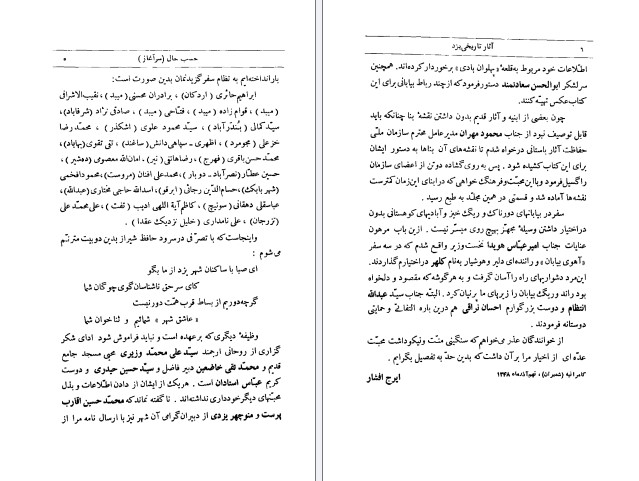 حسب حال (سرآغاز) ۵
یارانداخته‌ایم به نظام سفرگزیدنمان بدین صورت است:
ابراهیم حائری (اردکان)، برادران محسنی (میبد)، نقیب‌الاشرافی
(میبد)، قوام زاده (میبد)، فتاحی (میبد)، صادق نژاد (شرفاباد)،
سیّدکمالی (بُندرآباد)، سید محمود علوی (اشکذر)، محمّد رضا
خزعلی (مجومرد)، اظهری ـ سپاهی‌دانش (ساغند)، تقی تقوی (بهاباد)،
محمّدحسن باقری (فهرج)، رضاهاتفی (نیر)، امان‌الله معصومی (دهشیر)،
حسین عطّار (نصرآباد ـ دوبار)، محمّدعلی افنان (مروست)، محمود افخمی
(شهر بابک)، حسام‌الدّین رجائی (ابرقو)، اسدالله حاجی مختاری (عبدالله)،
عباسقلی دهقانی (سونیچ)، کاظم آیة اللهی ادیب (تفت)، علی‌محمّد علی
(نزرجان)، علی نامداری (خلیل نزدیک عقدا).
و اینجاست که با تصرّفی در سرود حافظ شیراز بدین دو بیت مترنّم
می‌شوم:
ای صبا با ساکنان شهر یزد از ما بگو
کای سر حق ناشناسان گوی چوگان شما
گرچه دوریم از بساط قرب همّت دور نیست
« عاشق شهر » شمائیم و ثناخوان شما
وظیفهٔ دیگری که بر عهده است و نباید فراموش شود ادای شکر
گزاری از روحانی ارجمند سیّد علی محمّد وزیری محیی مسجد جامع
قدیم و محمّد تقی خاضعین دبیر فاضل و سیّد حسین حیدری و دوست
کریم عبّاس استادان است. هریک از ایشان از دادن اطّلاعات و بذل
محبتهای دیگر خودداری نداشته‌اند. ناگفته نماند که محمّدحسین اقارب
پرست و منوچهر یزدی از دبیران گرامی آن شهر نیز با ارسال نامه مرا از
آثار تاریخی یزد ۶
اطّلاعات خود مربوط به قلعهٔ «پهلوان بادی» برخوردار کرده‌اند. همچنین
سرلشکر ابوالحسن سعادتمند دستور فرمود که از چند رباط بیابانی برای این
کتاب عکس تهیّه کنند.
چون بعضی از ابنیه و آثار قدیم بدون داشتن نقشهٔ بنا چنانکه باید
قابل توصیف نبود از جناب محمود مهران مدیرعامل محترم سازمان ملّی
حفاظت آثار باستانی درخواه شدم تا نقشه‌های آن بناها به دستور ایشان
برای این کتاب کشیده شود. پس به روی گشاده دو تن از اعضای سازمان
را گسیل فرمود و با این محبّت و فرهنگ خواهی که در ابنای این زمان کمترست
نقشه‌ها آماده شد و قسمتی در همین مجلّد به طبع رسید.
سفر در بیابانهای دور ناک و ریگ خیز و آبادیهای کوهستانی بدون
در اختیار داشتن وسیلهٔ مجهّز بهیچ روی میسّر نیست. ازین باب مرهون
عنایات جناب امیرعبّاس هویدا نخست‌وزیر واقع شدم که در سه سفر
«آهوی بیابان» و راننده‌ای دلیر و هوشیار به نام کلهر در اختیارم گذاردند.
این مرد دشواریهای راه را آسان گرفت و به هر گوشه که مقصود و دلخواه
بود راند و ریگ بیابان را زیر پای ما پرنیان کرد. البتّه جناب سیّد عبدالله
انتظام و دوست بزرگوارم احسان نراقی هم درین باره التفاتی و حمایتی
دوستانه فرمودند.
از خوانندگان عذر می‌خواهم که سنگینی منّت و نیکو داشت محبّت
عدّه‌ای از اخیار مرا بر آن داشت که بدین حدّ به تفصیل بگرایم.
کامرانیه (شمیران)، نهم آذرماه ۱۳۴۸ ایرج افشار